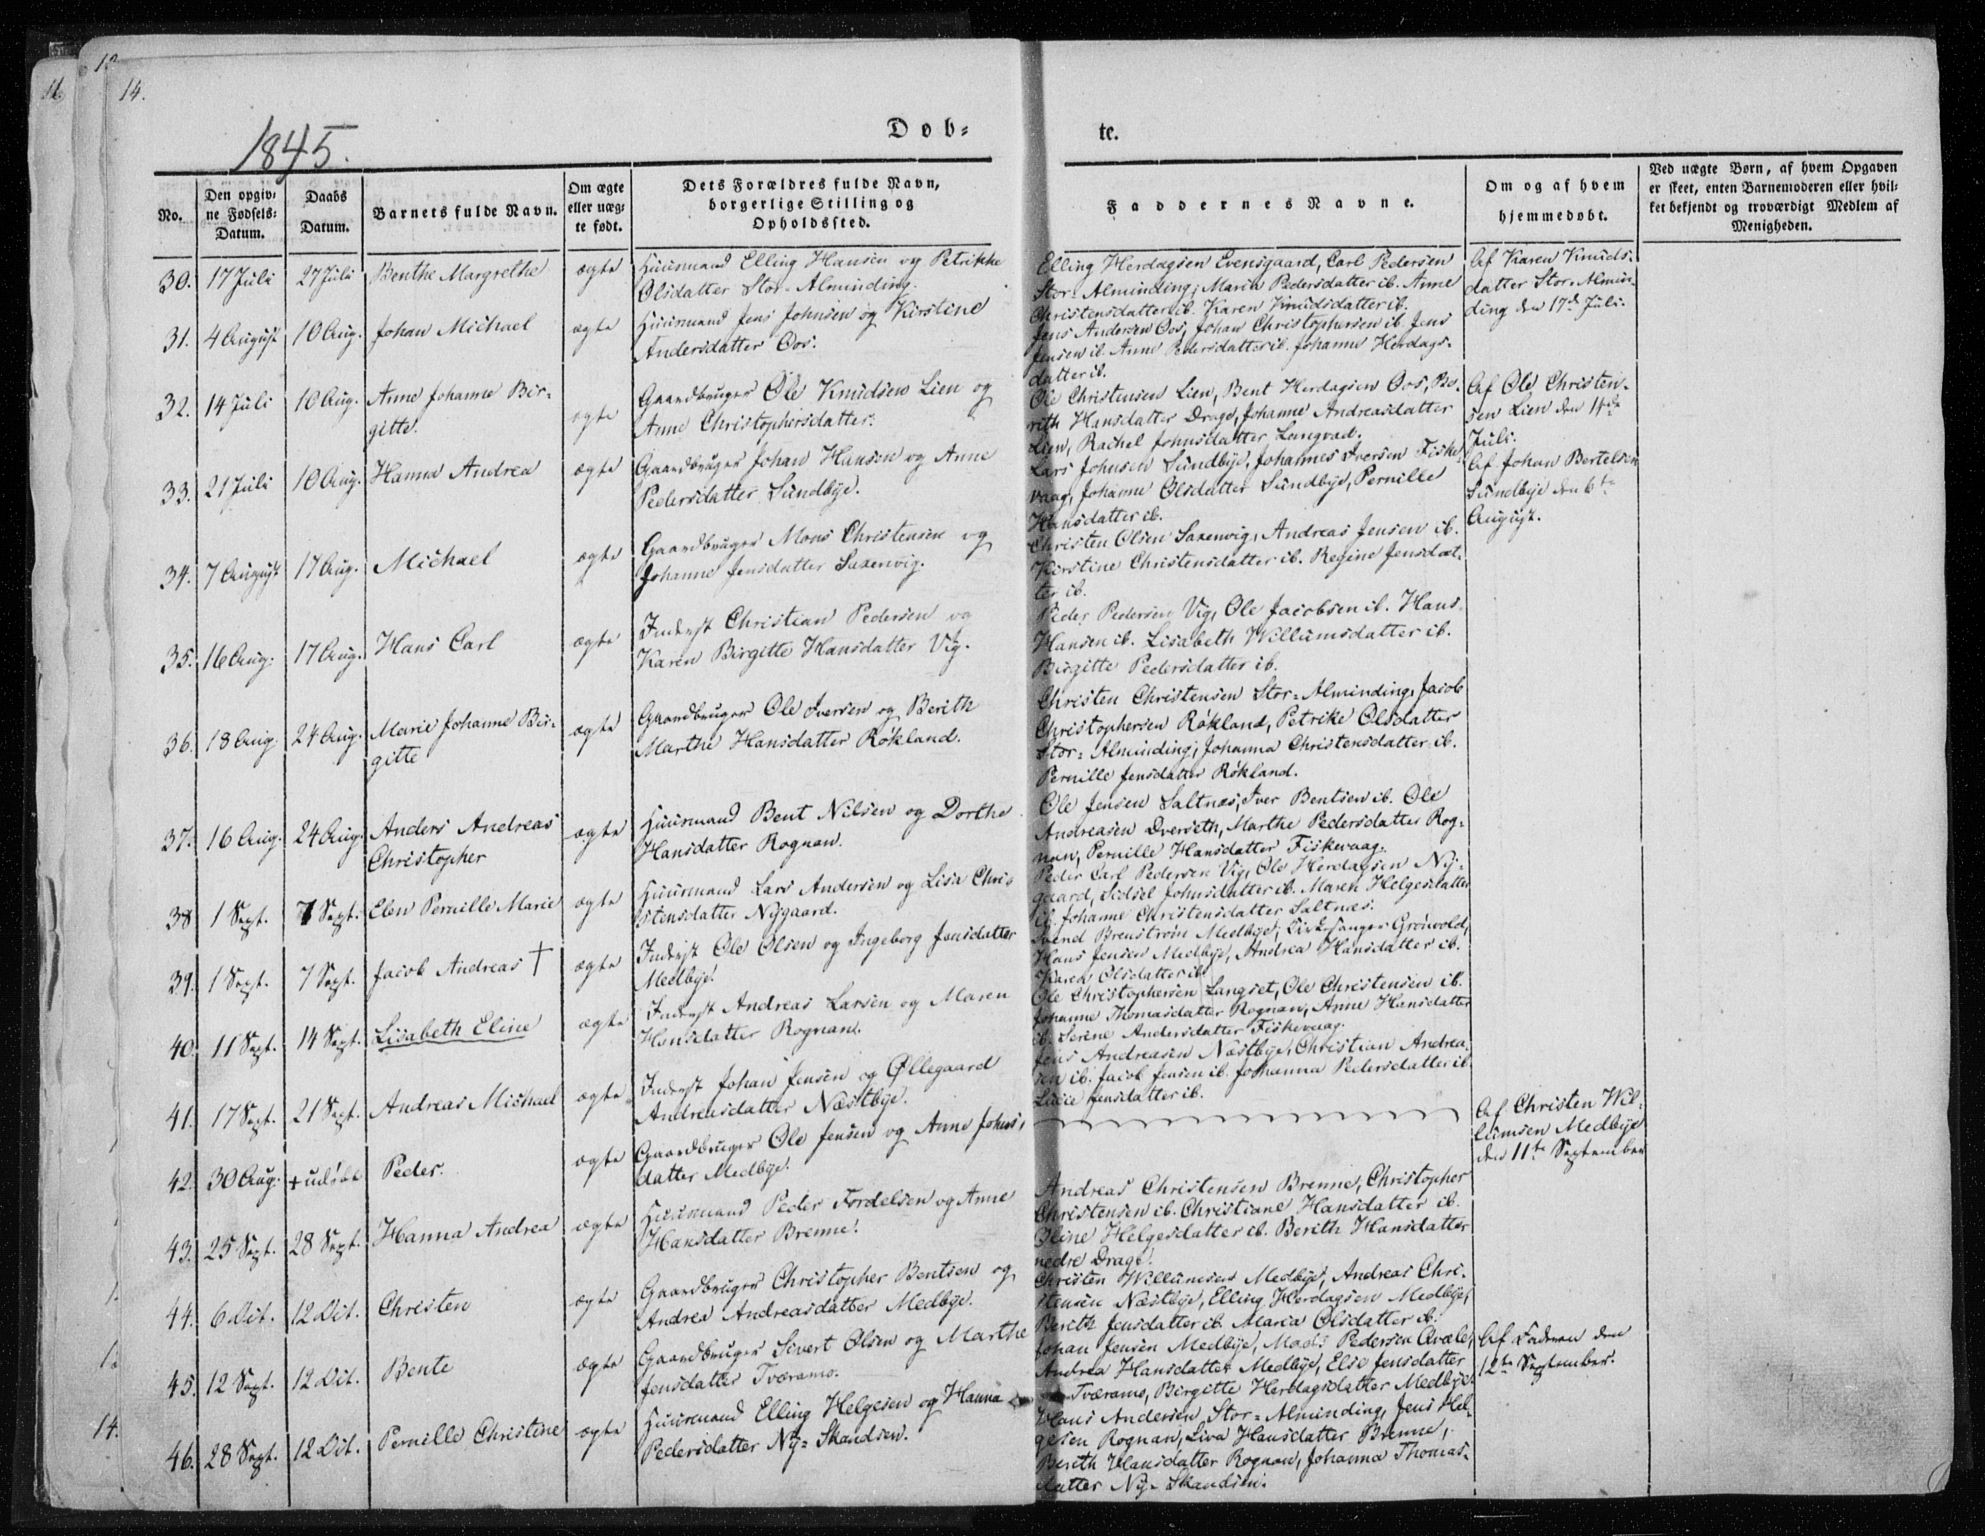 11.
12
14.
1845.
Døb-
te.
No.
Den opgiv-
ne Fødsels-
Datum.
Daabs
Datum.
Barnets fulde Navn.
Om ægte
eller uæg-
te født.
Dets Forældres fulde Navn,
borgerlige Stilling og
Opholdssted.
Faddernes Navne.
Om og af hvem
hjemmedøbt.
Ved uægte Børn, af hvem Opgaven
er skeet, enten Barnemoderen eller hvil-
ket bekjendt og troværdigt Medlem af
Menigheden.
30. 17 Juli 27 Juli Benthe Margrethe ægte
Huusmand Elling Hansen og Petrikke
Olsdatter Stor-Alminding.
Elling Herdagsen Evensgaard, Carl Pedersen
Stor-Alminding, Maria Pedersdatter ib. Anne
Christensdatter ib. Karen Knudsdatter ib.
Af Karen Knuds-
datter Stor-Almin-
ding den 17de Juli.
31. 4 August 10 Aug. Johan Michael ægte
Huusmand Jens Johnsen og Kirstine
Andersdatter Oos.
Jens Andersen Oos, Johan Christophersen ib. Jens
Jensen ib. Anne Pedersdatter ib. Johanne Herdags-
datter ib.
32. 14 Juli 10 Aug. Anne Johanne Bir-
gitte. ægte
Gaardbruger Ole Knudsen Lien og
Anne Christophersdatter.
Ole Christensen Lien, Bent Herdagsen Oos, Be-
rith Hansdatter Drage, Johanne Andreasdatter
Lien, Rachel Johnsdatter Langvad.
Af Ole Christen-
sen Lien den 14de
Juli.
33. 21 Juli 10 Aug. Hanna Andrea ægte
Gaardbruger Johan Hansen og Anne
Pedersdatter Sundbye.
Lars Johnsen Sundbye, Johannes Iversen Fiske
vaag, Johanne Olsdatter Sundbye, Pernille
Hansdatter ib.
Af Johan Bertelsen
Sundbye den 6te
August.
34. 7 August 17 Aug. Michael ægte
Gaardbruger Mons Christensen og
Johanne Jensdatter Saxenvig.
Christen Olsen Saxenvig, Andreas Jensen ib.
Kirstine Christensdatter ib. Regine Jensdat-
ter ib.
35. 16 Aug. 17 Aug. Hans Carl ægte
Inderst Christian Pedersen og
Karen Birgitte Hansdatter Vig.
Peder Pedersen Vig, Ole Jacobsen ib. Hans
Hansen ib. Lisabeth Willumsdatter ib.
Birgitte Pedersdatter ib.
36. 18 Aug. 24 Aug. Marie Johanne Bir-
gitte ægte
Gaardbruger Ole Iversen og Berith
Marthe Hansdatter Røkland.
Christen Christensen Stor-Alminding, Jacob
Christophersen Røkland, Petrike Olsdatter
Stor-Alminding, Johanna Christensdatter ib.
Pernille Jensdatter Røkland.
37. 16 Aug. 24 Aug. Anders Andreas
Christopher ægte
Huusmand Bent Nilsen og Dorthe
Hansdatter Rognan.
Ole Jensen Saltnæs, Iver Bentsen ib. Ole
Andreasen Dverseth, Marthe Pedersdatter Rog-
nan, Pernille Hansdatter Fiskevaag.
38 1 Sept. 7 Sept. Elen Pernille Marie ægte
Huusmand Lars Andersen og Lisa Chri-
stensdatter Nygaard.
Peder Carl Pedersen Vig, Ole Herdagsen Ny-
gaard, Sidsel Johnsdatter ib. Maren Helgesdatter
ib. Johanne Christensdatter Saltnæs.
39. 1 Sept. 7 Sept. Jacob Andreas † ægte
Inderst Ole Olsen og Ingeborg Jensdatter
Medbye.
Svend Brenstrøm Medbye, Kirkesanger Grønvold,
Hans Jensen Medbye, Andrea Hansdatter ib.
Karen Olsdatter ib.
40. 11 Sept. 14 Sept. Lisabeth Eline ægte
Inderst Andreas Larsen og Maren
Hansdatter Rognan.
Ole Christophersen Langset, Ole Christensen ib.
Johanne Thomasdatter Rognan, Anne Hansdatter
ib. Serine Andersdatter Fiskevaag.
41. 17 Sept. 21 Sept. Andreas Michael ægte
Inderst Johan Jensen og Øllegaard
Andreasdatter Næstbye.
Jens Andreasen Næstbye, Christian Andrea-
sen ib. Jacob Jensen ib. Johanna Pedersdatter ib.
Lucie Jensdatter ib.
42. 30 Aug. + udøbt Peder. ægte
Gaardbruger Ole Jensen og Anne Johns-
datter Medbye.
Af Christen Wil-
lumsen Medbye
den 11te September
43. 25 Sept. 28 Sept. Hanna Andrea ægte
Huusmand Peder Tordelsen og Anne
Hansdatter Brenne.
Andreas Christensen Brenne, Christopher
Christensen ib. Christiane Hansdatter ib.
Oline Helgesdatter ib. Berith Hansdatter
nedre Drage.
44. 6 Oct. 12 Oct. Christen ægte
Gaardbruger Christopher Bentsen og
Andrea Andreasdatter Medbye.
Christen Willumsen Medbye, Andreas Chri-
stensen Næstbye, Elling Herdagsen Medbye,
Berith Jensdatter ib. Maria Olsdatter ib.
45. 12 Sept. 12 Oct. Bente ægte
Gaardbruger Sivert Olsen og Marthe
Jensdatter Tveramo.
Johan Jensen Medbye, Mads Pedersen Qvæle,
Andrea Hansdatter Medbye, Else Jensdatter
Tveramo, Birgitte Herdagsdatter Medbye.
Af Faderen den
12te September.
46. 28 Sept. 12 Oct. Pernille Christine ægte
Huusmand Elling Helgesen og Hanna
Pedersdatter Ny-Skandsen.
Hans Andersen Stor-Alminding, Jens Hel-
gesen Rognan, Liva Hansdatter Brenne,
Berith Hansdatter Rognan, Johanna Thomas-
datter Ny-Skandsen.
1.
1.
14.